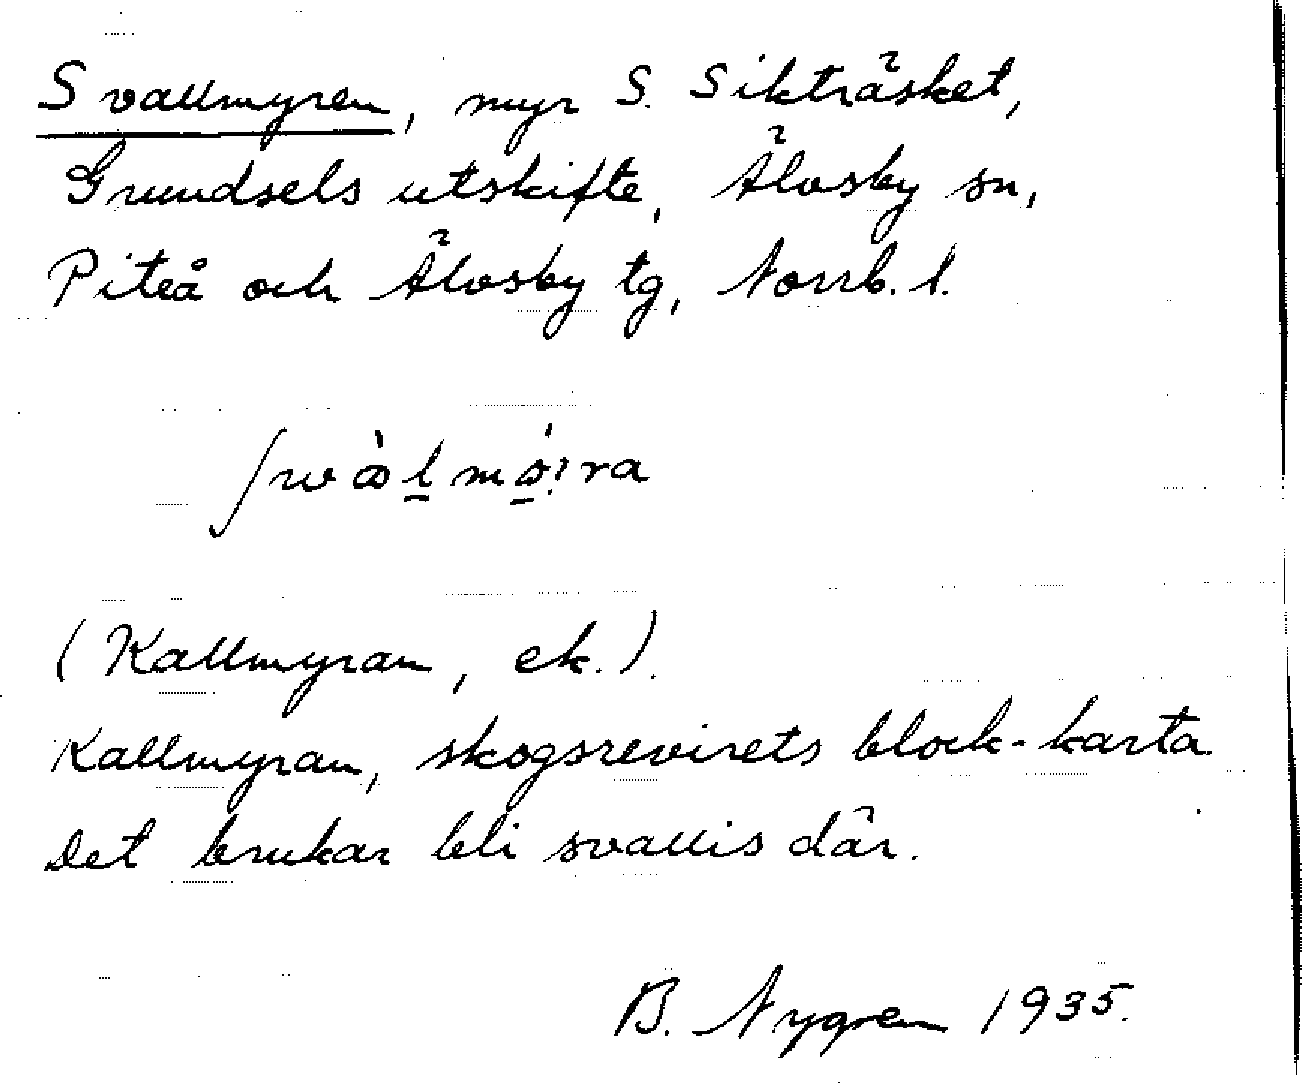 Svallmyren, myr S. Sikträsket,
Grundsels utskifte, Älvsby sn,
Piteå och Älvsby tg, Norrb. l.
(Kallmyran, ek.).
Kallmyran, skogsrevirets block-karta
Det brukar bli svallis där.
B. Nygren 1935.